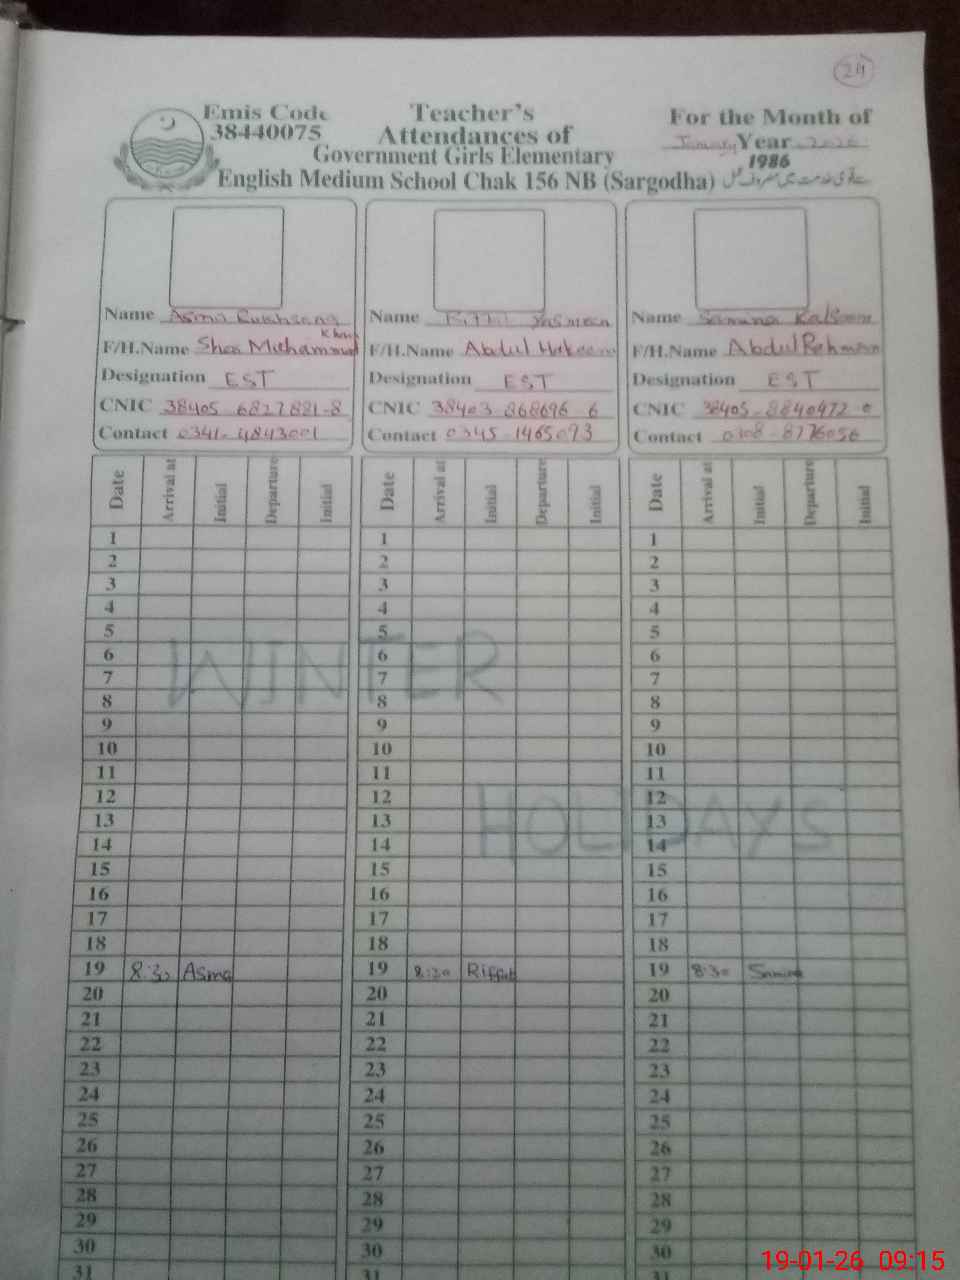 24
Emis Code
38440075
Teacher's
Attendances of
Government Girls Elementary
English Medium School Chak 156 NB (Sargodha)
For the Month of
January Year 2026
1986
Name Asma Rukhsana
F/H.Name Sher Muhammad Khan
Designation EST
CNIC 38405 6827881-8
Contact 0341-4843001
Name Riffat Yasmeen
F/H.Name Abdul Hakeem
Designation EST
CNIC 38403-868696 6
Contact 0345-1465093
Name Samina Kalsoom
F/H.Name Abdul Rehman
Designation EST
CNIC 38405-8840472-0
Contact 0308-8776056
Date Arrival at Initial Departure Initial Date Arrival at Initial Departure Initial Date Arrival at Initial Departure Initial
1 1 1
2 2 2
3 3 3
4 4 4
5 5 5
6 6 6
7 7 7
WINTER
8 8 8
9 9 9
10 10 10
11 11 11
12 12 12
13 13 13
HOLIDAYS
14 14 14
15 15 15
16 16 16
17 17 17
18 18 18
19 8:30 Asma 19 8:30 Riffat 19 8:30 Samina
20 20 20
21 21 21
22 22 22
23 23 23
24 24 24
25 25 25
26 26 26
27 27 27
28 28 28
29 29 29
30 30 30
31 31 31
19-01-26 09:15